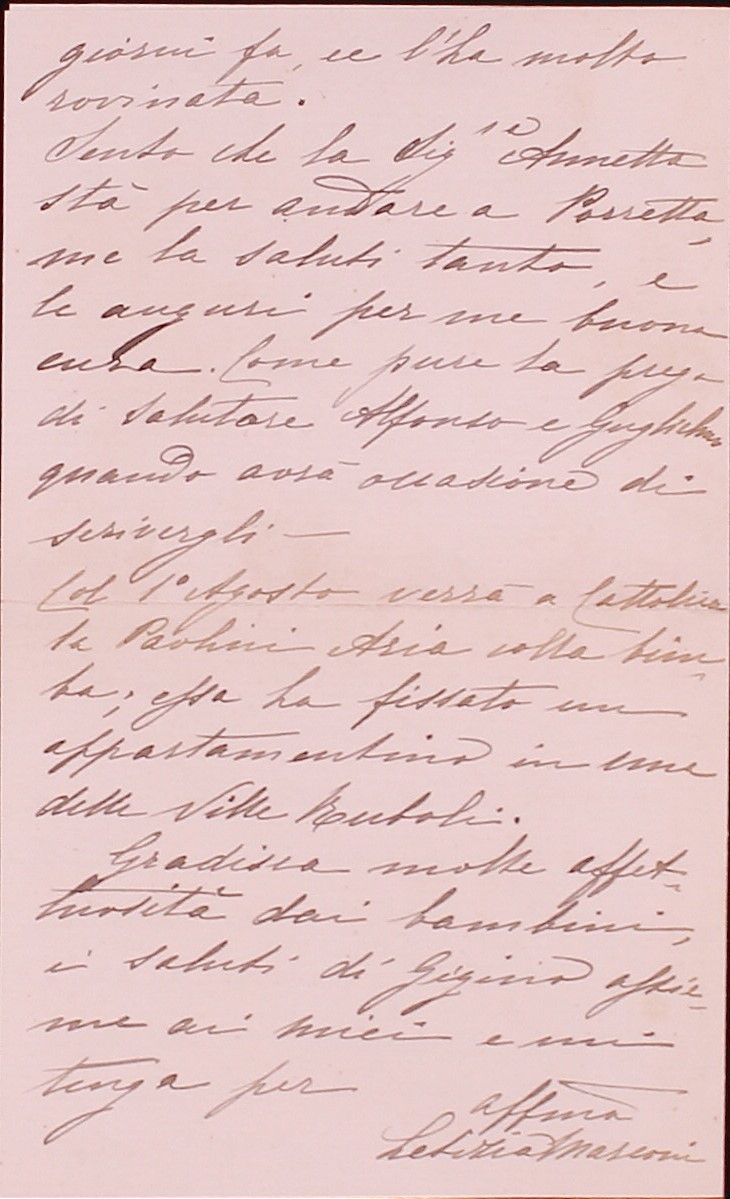 giorni fa, e l'ha molto
rovinata.
Sento che la Sig.ra Annetta
stà per andare a Porretta,
me la saluti tanto, e
le auguri per me buona
cura. Come pure la prego
di salutare Alfonso e Guglielmo
quando avrà occasione di
scrivergli —
Col 1° Agosto verrà a Cattolica
la Paolini Aria colla bim-
ba; essa ha fissato un
appartamentino in una
delle Ville
Gradisca molte affet-
tuosità dai bambini,
i saluti di Gigino assie-
me ai miei e mi
tenga per
affma
Letizia Marconi